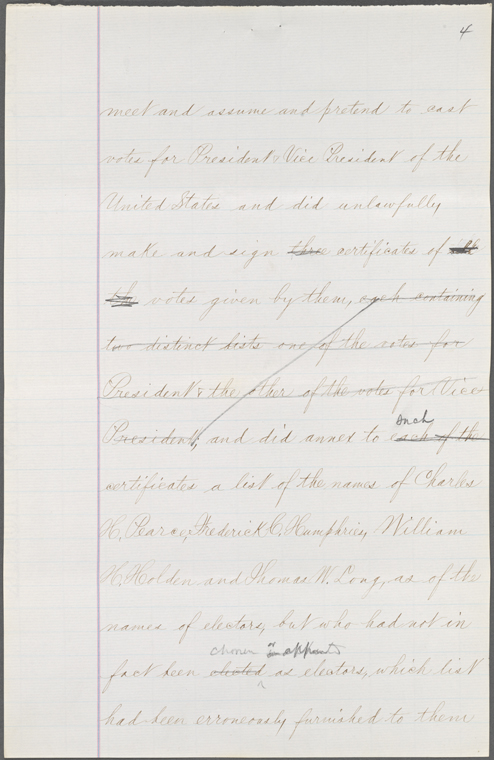 4
meet and assume and pretend to cast
votes for President & Vice President of the
United States and did unlawfully
make and sign three certificates of all
the votes given by them, each containing
two distinct lists one of the votes for
President & the other of the votes for Vice
President, and did annex to each of the
such
certificates a list of the names of Charles
H. Pearce, Frederick C. Humphries, William
H. Holden and Thomas W. Long, as of the
names of electors, but who had not in
chosen or appointed
fact been elected as electors, which list
had been erroneously furnished to them